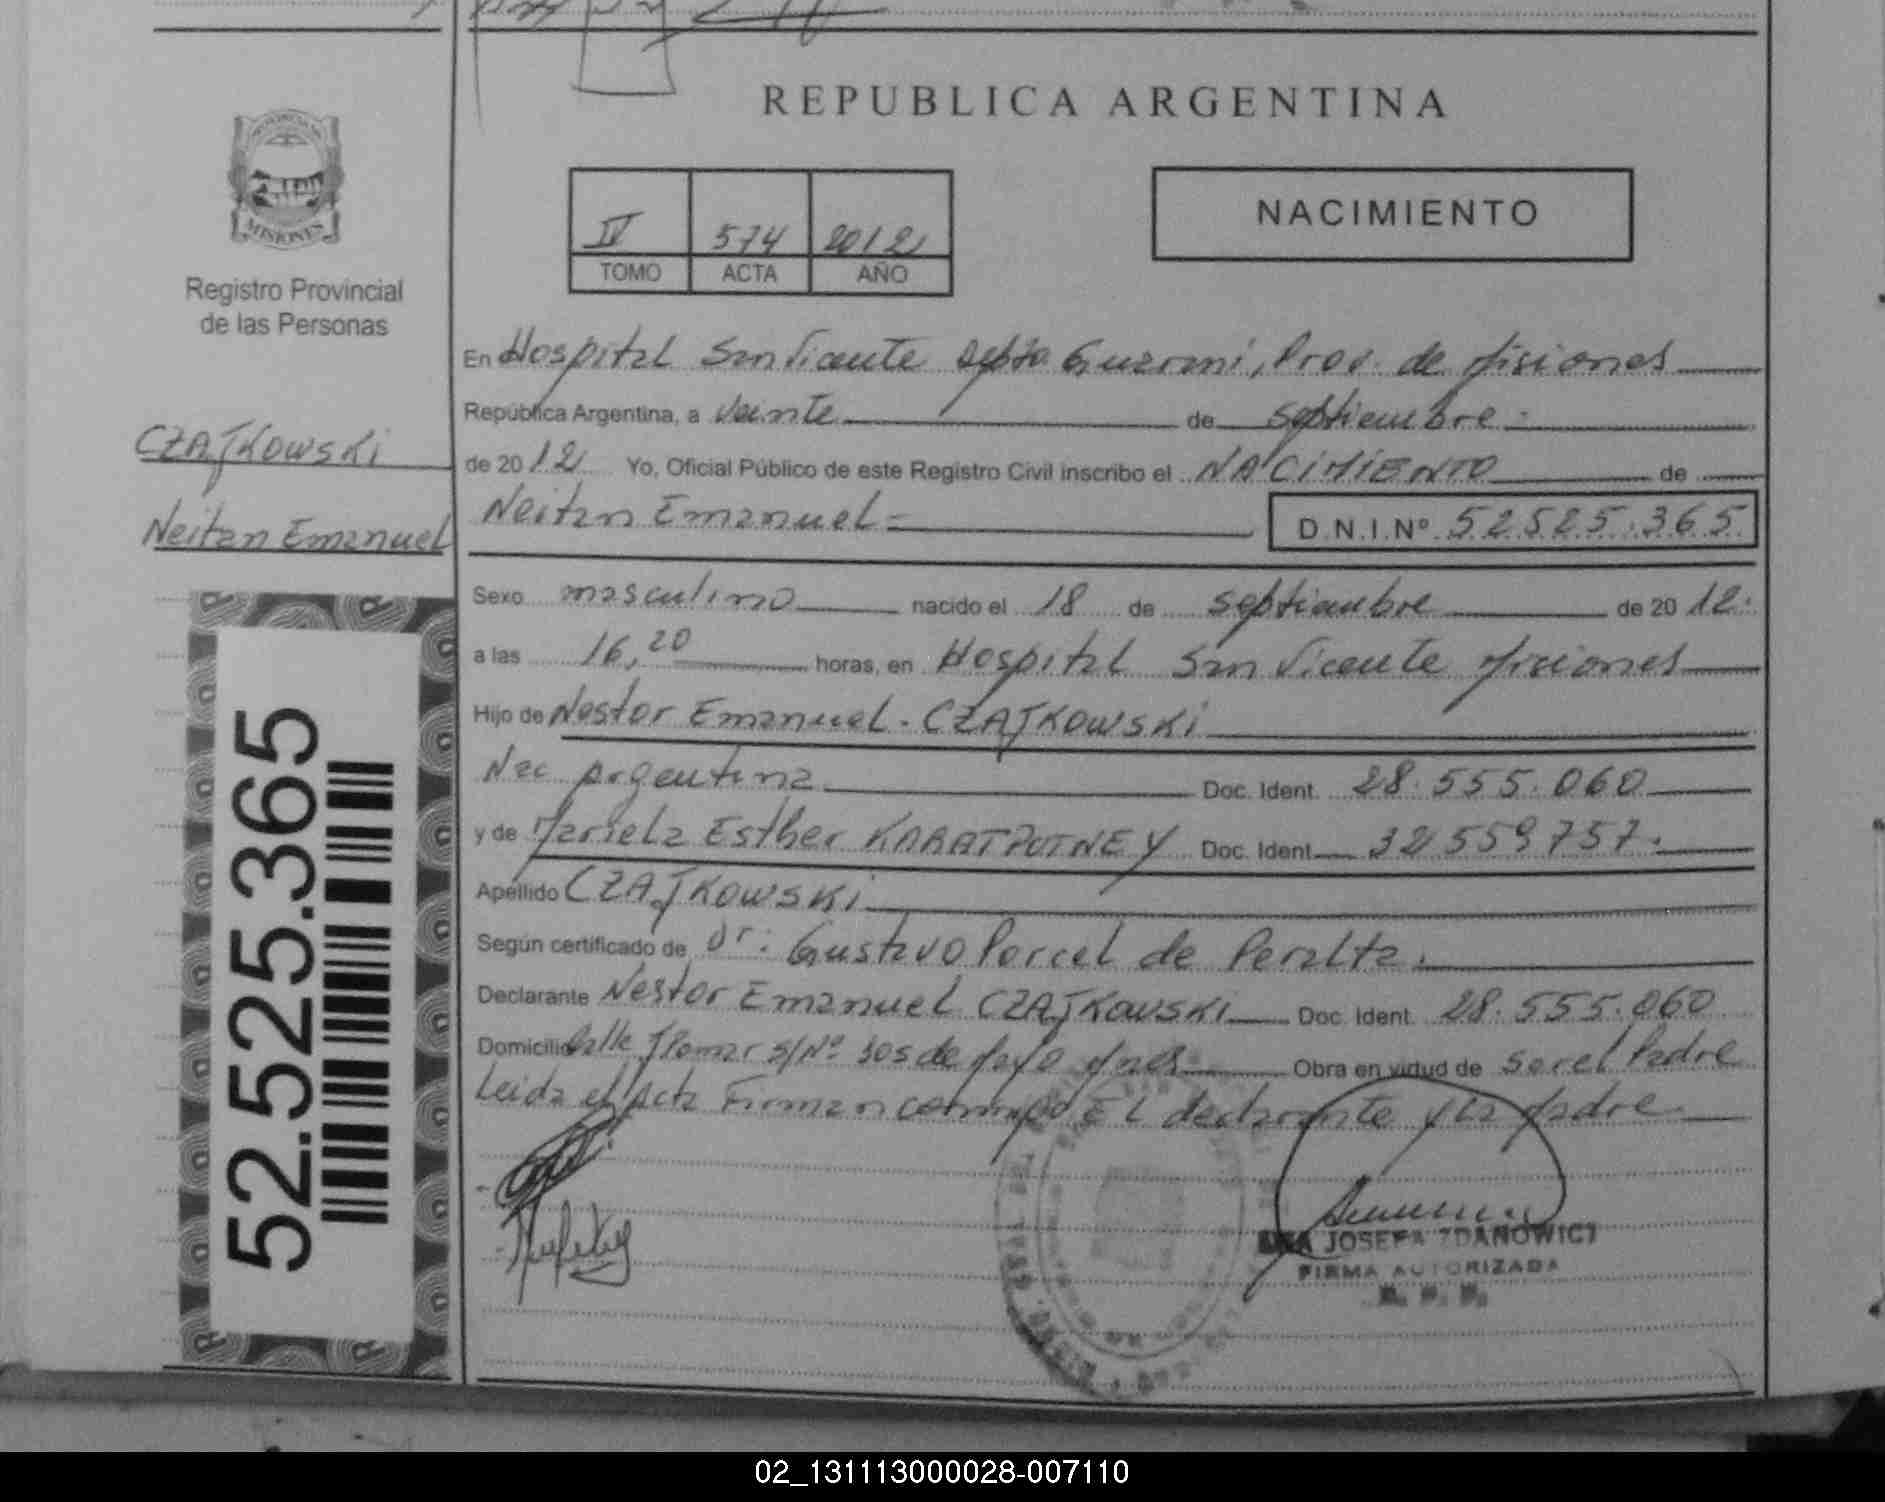 REPUBLICA ARGENTINA
PROVINCIA DE
MISIONES
Registro Provincial
de las Personas
IV 574 2012
TOMO ACTA AÑO
NACIMIENTO
CZAJKOWSKI
Neitan Emanuel
52.525.365
En Hospital San Vicente Depto Guaraní, Prov. de Misiones
República Argentina, a veinte de septiembre
de 2012 Yo, Oficial Público de este Registro Civil inscribo el NACIMIENTO de
Neitan Emanuel D.N.I.Nº 52525.365
Sexo masculino nacido el 18 de septiembre de 2012.
a las 16,20 horas, en Hospital San Vicente Misiones
Hijo de Nestor Emanuel CZAJKOWSKI
Nac Argentina Doc. Ident. 28.555.060
y de Mariela Esther Doc. Ident. 32 559 757.
Apellido CZAJKOWSKI
Según certificado de Dr: Gustavo Porcel de Peralta.
Declarante Nestor Emanuel CZAJKOWSKI Doc. Ident. 28.555.060
Domicilio Calle S/Nº de Mayo Obra en virtud de ser el Padre
Leida el Acta Firman conmigo El declarante y la Madre
JOSEFA ZDANOWICZ
FIRMA AUTORIZADA
02_131113000028-007110